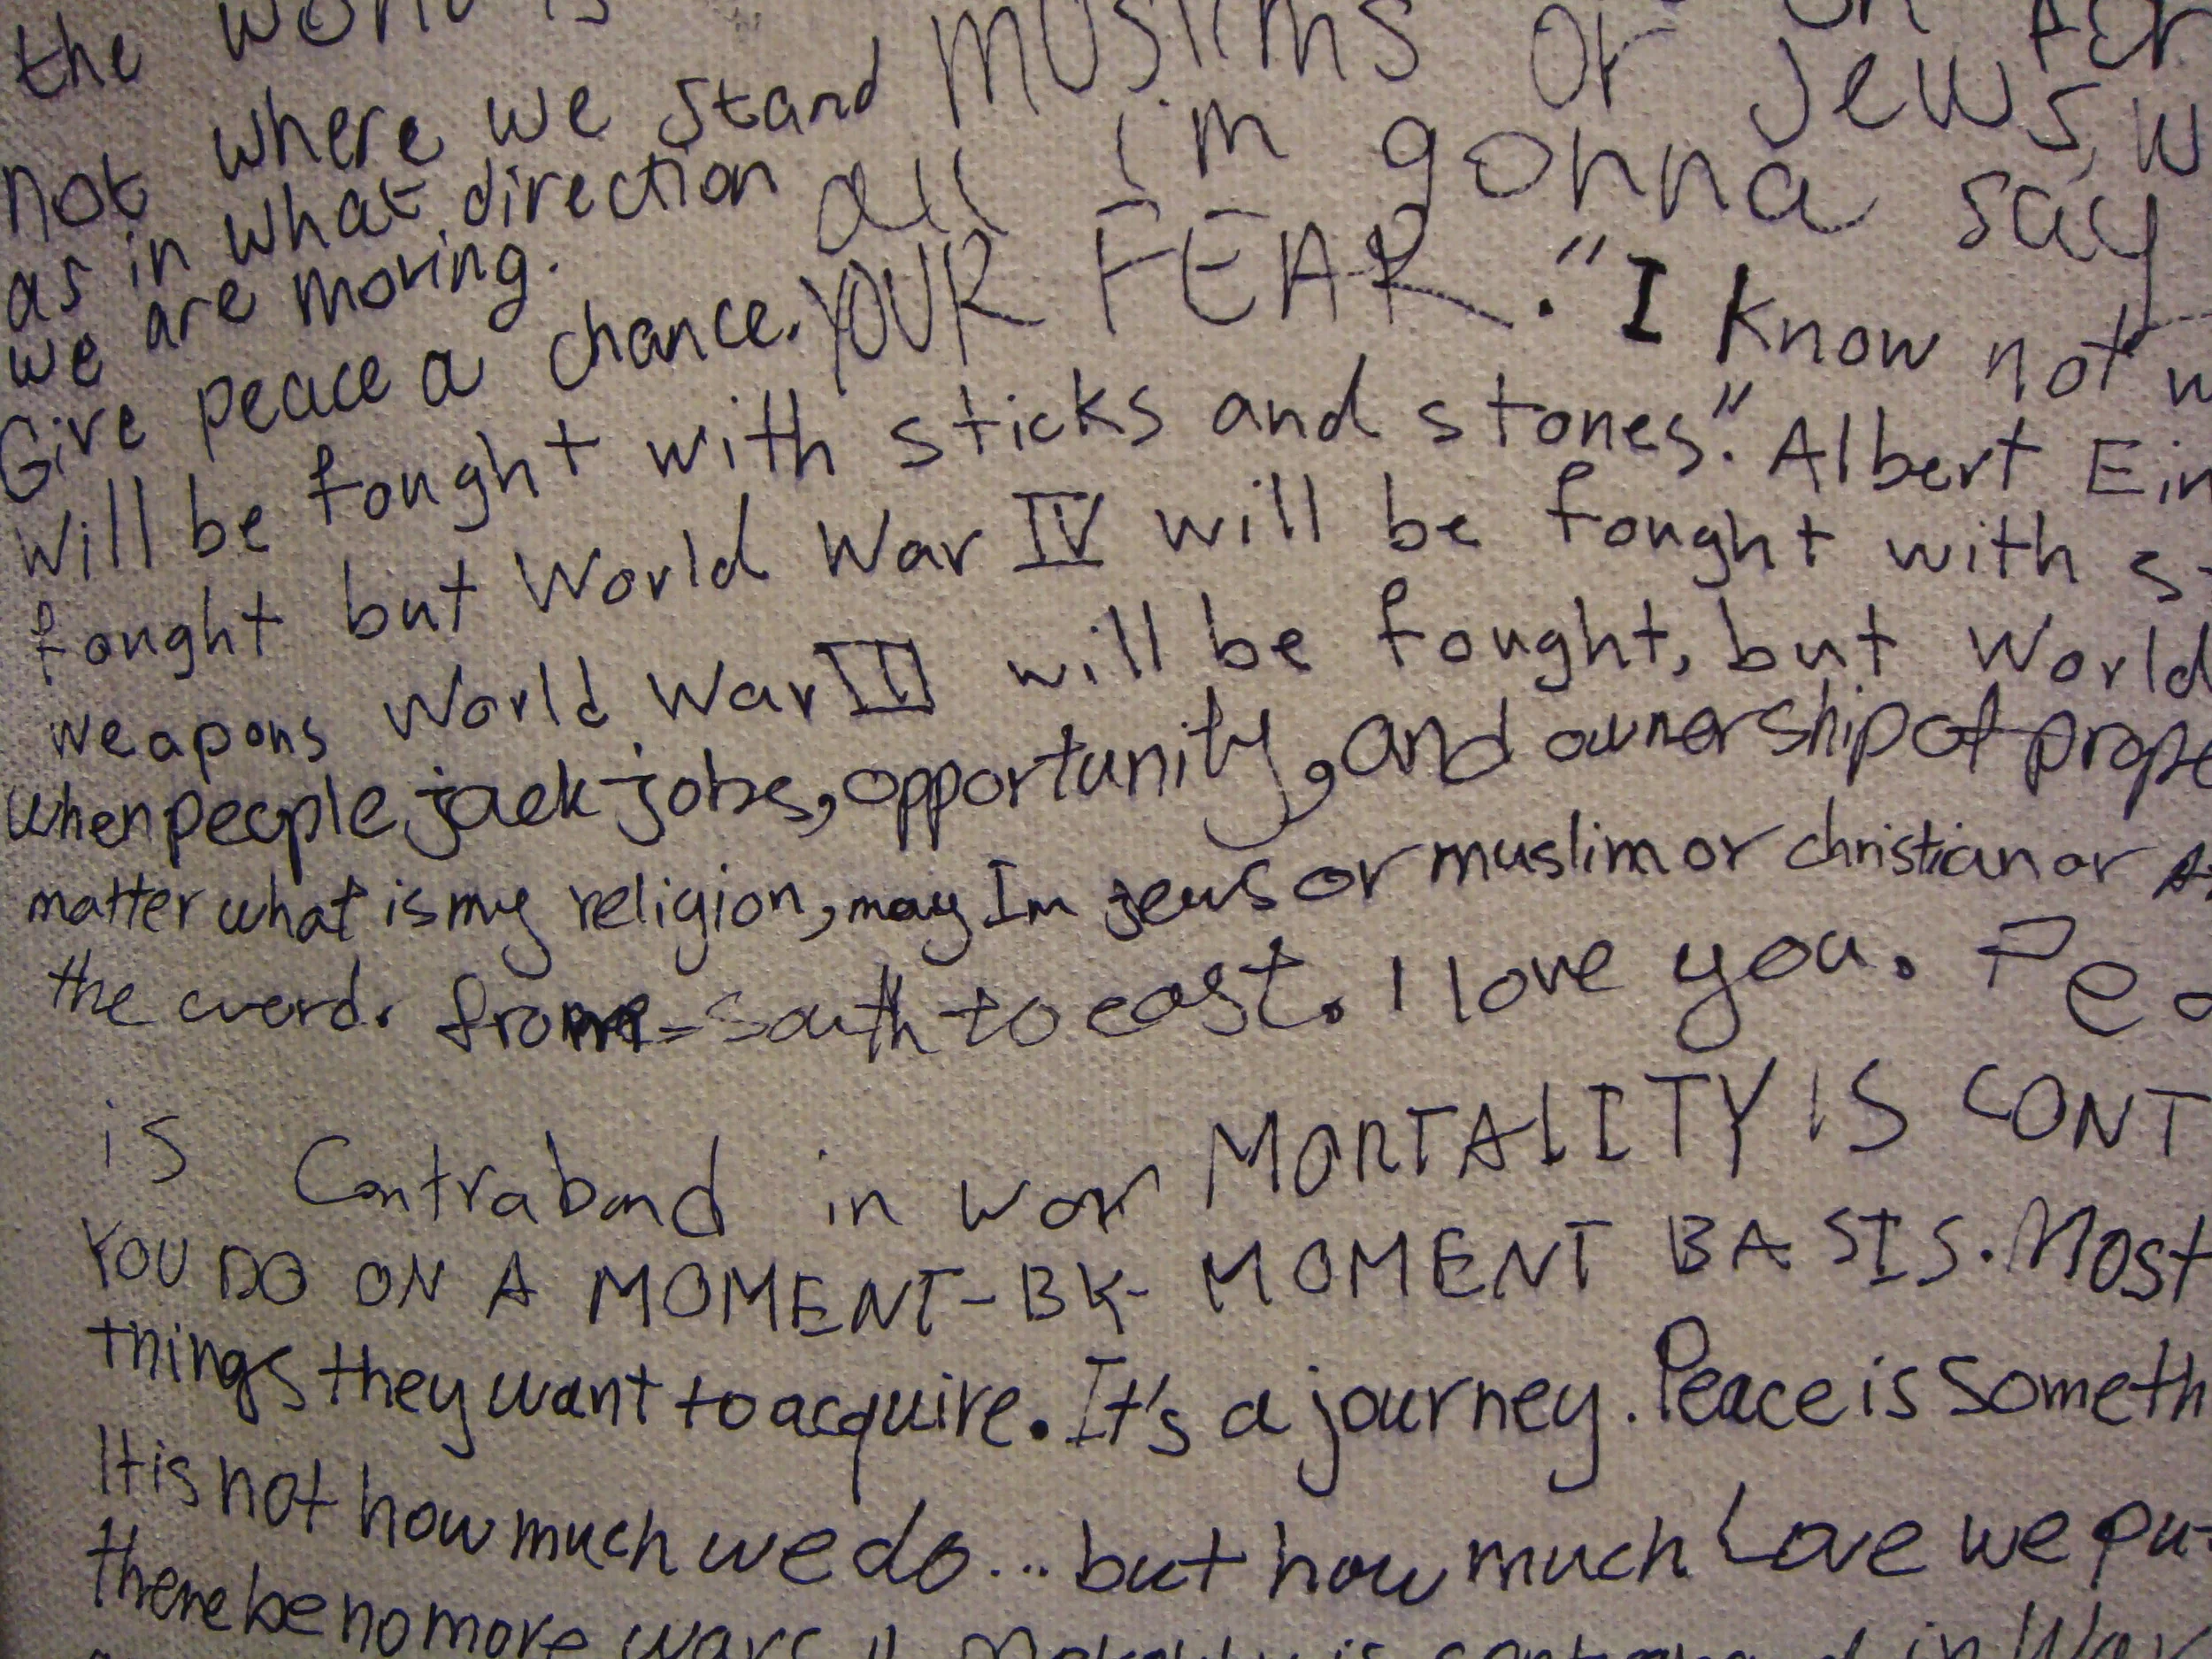 the world is muslims or
not where we stand i'm Jews, w
as in what direction all gonna say
we are moving. YOUR FEAR. "I know not w
Give peace a chance.
will be fought with sticks and stones". Albert Ein
fought but World War IV will be fought with s
weapons World War III will be fought, but World
when people jack jobs, opportunity, and ownership of prope
matter what is my religion, may Im jews or muslim or christian or
the word. from south to east. I love you. Pea
is Contraband in war MORTALITY IS CONT
YOU DO ON A MOMENT-BY-MOMENT BASIS. Most
things they want to acquire. It's a journey. Peace is someth
It is not how much we do... but how much Love we put
there be no more wars is contraband in War